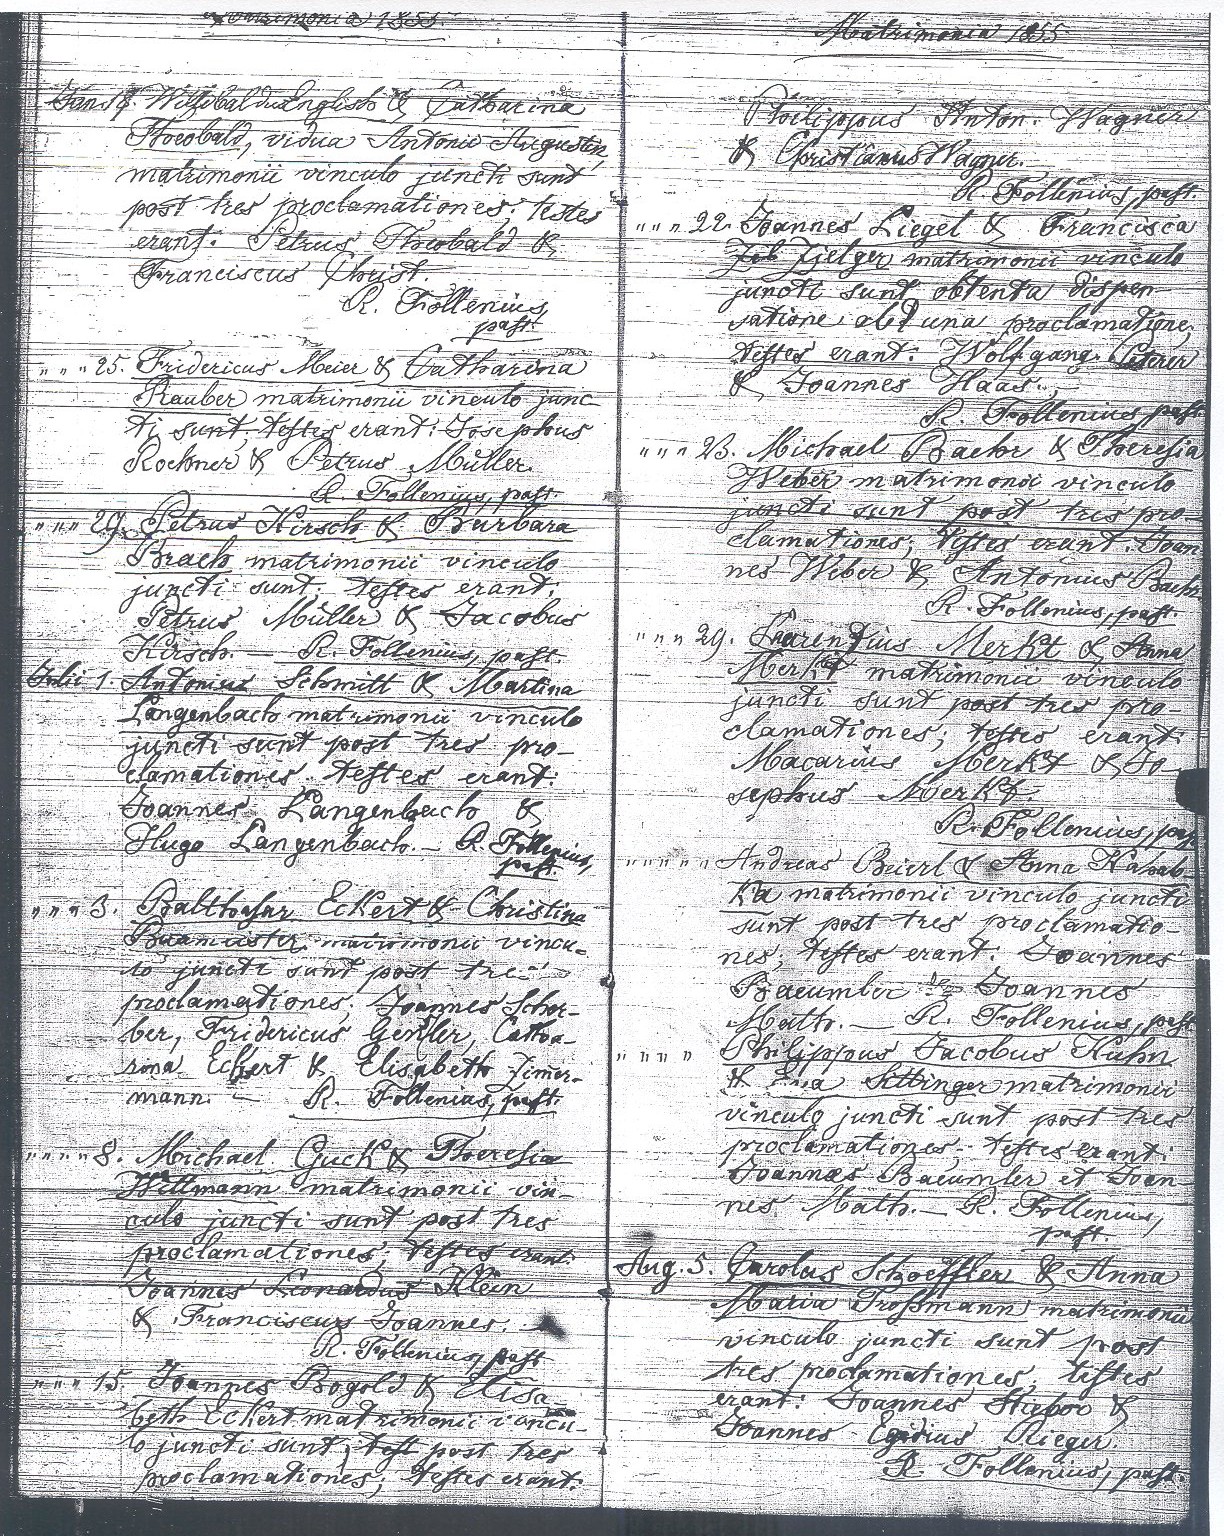 Matrimonia 1855.
Willibaldus Englisb & Catharina
Theobald, vidua Antonii Augustin,
matrimonii vinculo juncti sunt
post tres proclamationes; testes
erant: Petrus Theobald &
Franciscus Christ.
R. Follenius,
past.
" " " 25. Fridericus Meier & Catharina
Rauber matrimonii vinculo junc-
ti sunt, testes erant: Josephus
Rochner & Petrus Müller.
R. Follenius, past.
" " " 29. Petrus Kirsch & Barbara
Brach matrimonii vinculo
juncti sunt; testes erant:
Petrus Müller & Jacobus
Kirsch. — R. Follenius, past.
Julii 1. Antonius Schmitt & Martina
Langenbach matrimonii vinculo
juncti sunt post tres pro-
clamationes. testes erant:
Joannes Langenbach &
Hugo Langenbach. — R. Follenius,
past.
" " " 3. Balthasar Eckert & Christina
Baumeister matrimonii vincu-
lo juncti sunt post tres
proclamationes; Joannes Scher-
ber, Fridericus Gessler, Catha-
rina Eckert & Elisabeth Zimer-
mann. — R. Follenius, past.
" " " " 8. Michael Guck & Theresia
Wittmann matrimonii vin-
culo juncti sunt post tres
proclamationes; testes erant:
Joannes Leonardus Klein
& Franciscus Joannes.
R. Follenius, past
" " " 15. Joannes Bogold & Elisa
beth Eckert matrimonii vincu-
lo juncti sunt, test post tres
proclamationes; testes erant:
Matrimonia 1855
Philippus Anton. Wagner
& Christianus Wagner.
R. Follenius, past.
" " " 22. Joannes Liegel & Francisca
Zjelger matrimonii vinculo
juncti sunt obtenta dispen-
satione ab una proclamatione,
testes erant: Wolfgang
& Joannes Haas.
R. Follenius, past
" " " 23. Michael Baehr & Theresia
Weber matrimonii vinculo
juncti sunt post tres pro-
clamationes; testes erant: Joan
nes Weber & Antonius Baehr
R. Follenius, past.
" " " 29. Laurentius Merkt & Anna
Merkt matrimonii vinculo
juncti sunt post tres pro-
clamationes; testes erant:
Macarius Merkt & Jo
sephus Merkt.
R. Follenius, past
" " " " " Andreas Bierl & Anna Kabab-
ka matrimonii vinculo juncti
sunt post tres proclamatio-
nes; testes erant: Joannes
Baeumber Joannes
Math. — R. Follenius, past
" " " " Philippus Jacobus Kuhn
& Sittinger matrimonii
vinculo juncti sunt post tres
proclamationes- testes erant:
Joannes Baeumler et Joan-
nes Math. — R. Follenius,
past.
Aug. 5. Carolus Schoeffler & Anna
Maria Troßmann matrimonii
vinculo juncti sunt post
tres proclamationes; testes
erant: Joannes Stieboo &
Joannes Egidius Rieger.
R. Follenius, past.